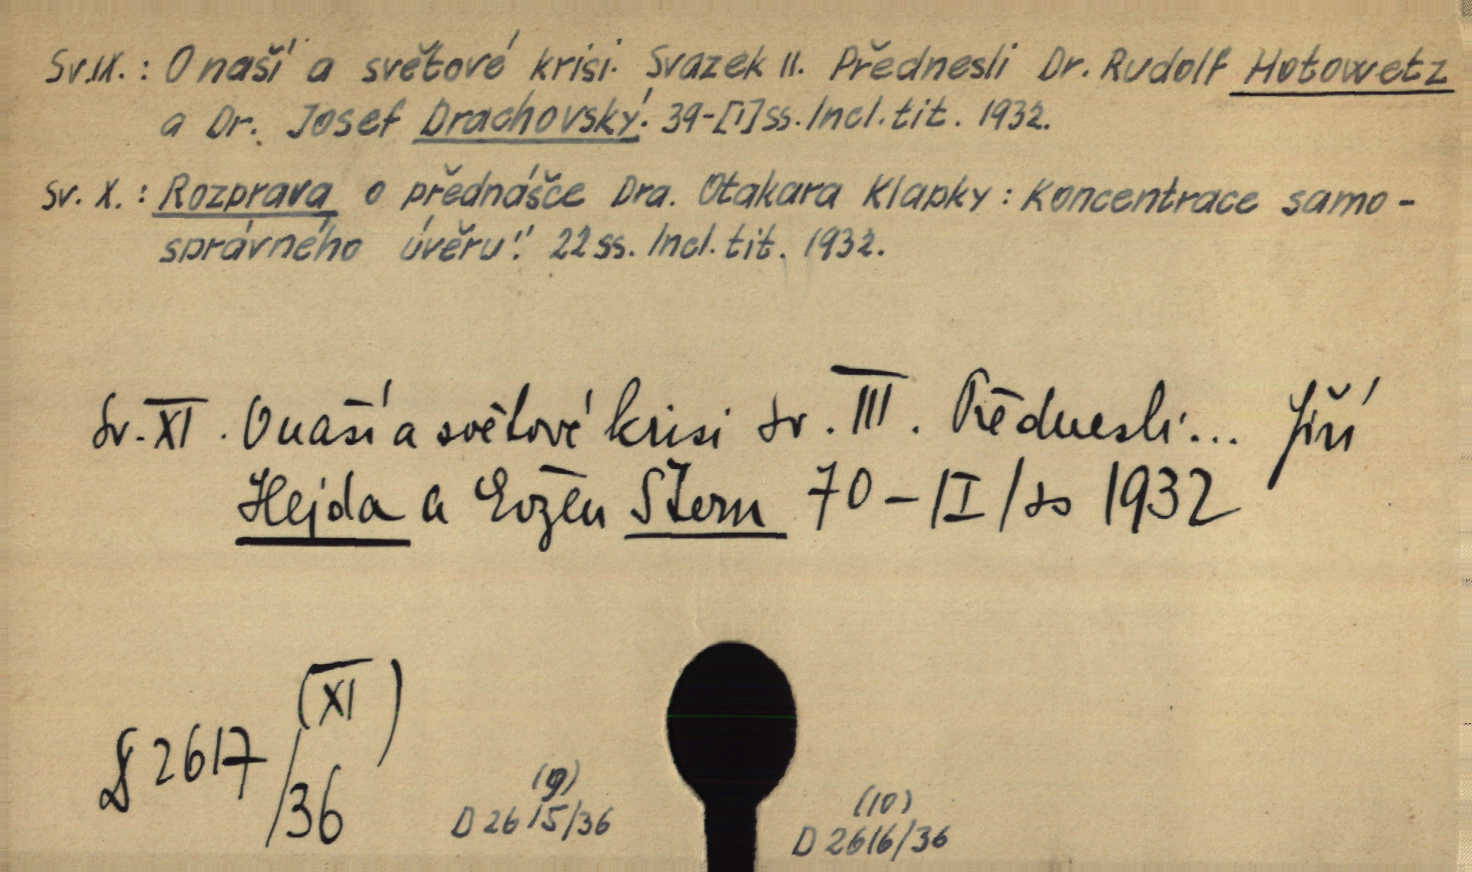 Sv.IX.: O naší a světové krisi. Svazek II. Přednesli Dr. Rudolf Hotowetz
a Dr. Josef Drachovský. 39-[1] ss. Incl. tit. 1932.
Sv. X.: Rozprava o přednášce Dra. Otakara Klapky: Koncentrace samo-
správného úvěru." 22 ss. Incl. tit. 1932.
Sv. XI. O naší a světové krisi sv. III. Přednesli... Jiří
Hejda a Evžen Stern 70-/I/ ss 1932
D 2617/36 (XI)
(9)
D 2615/36
(10)
D 2616/36